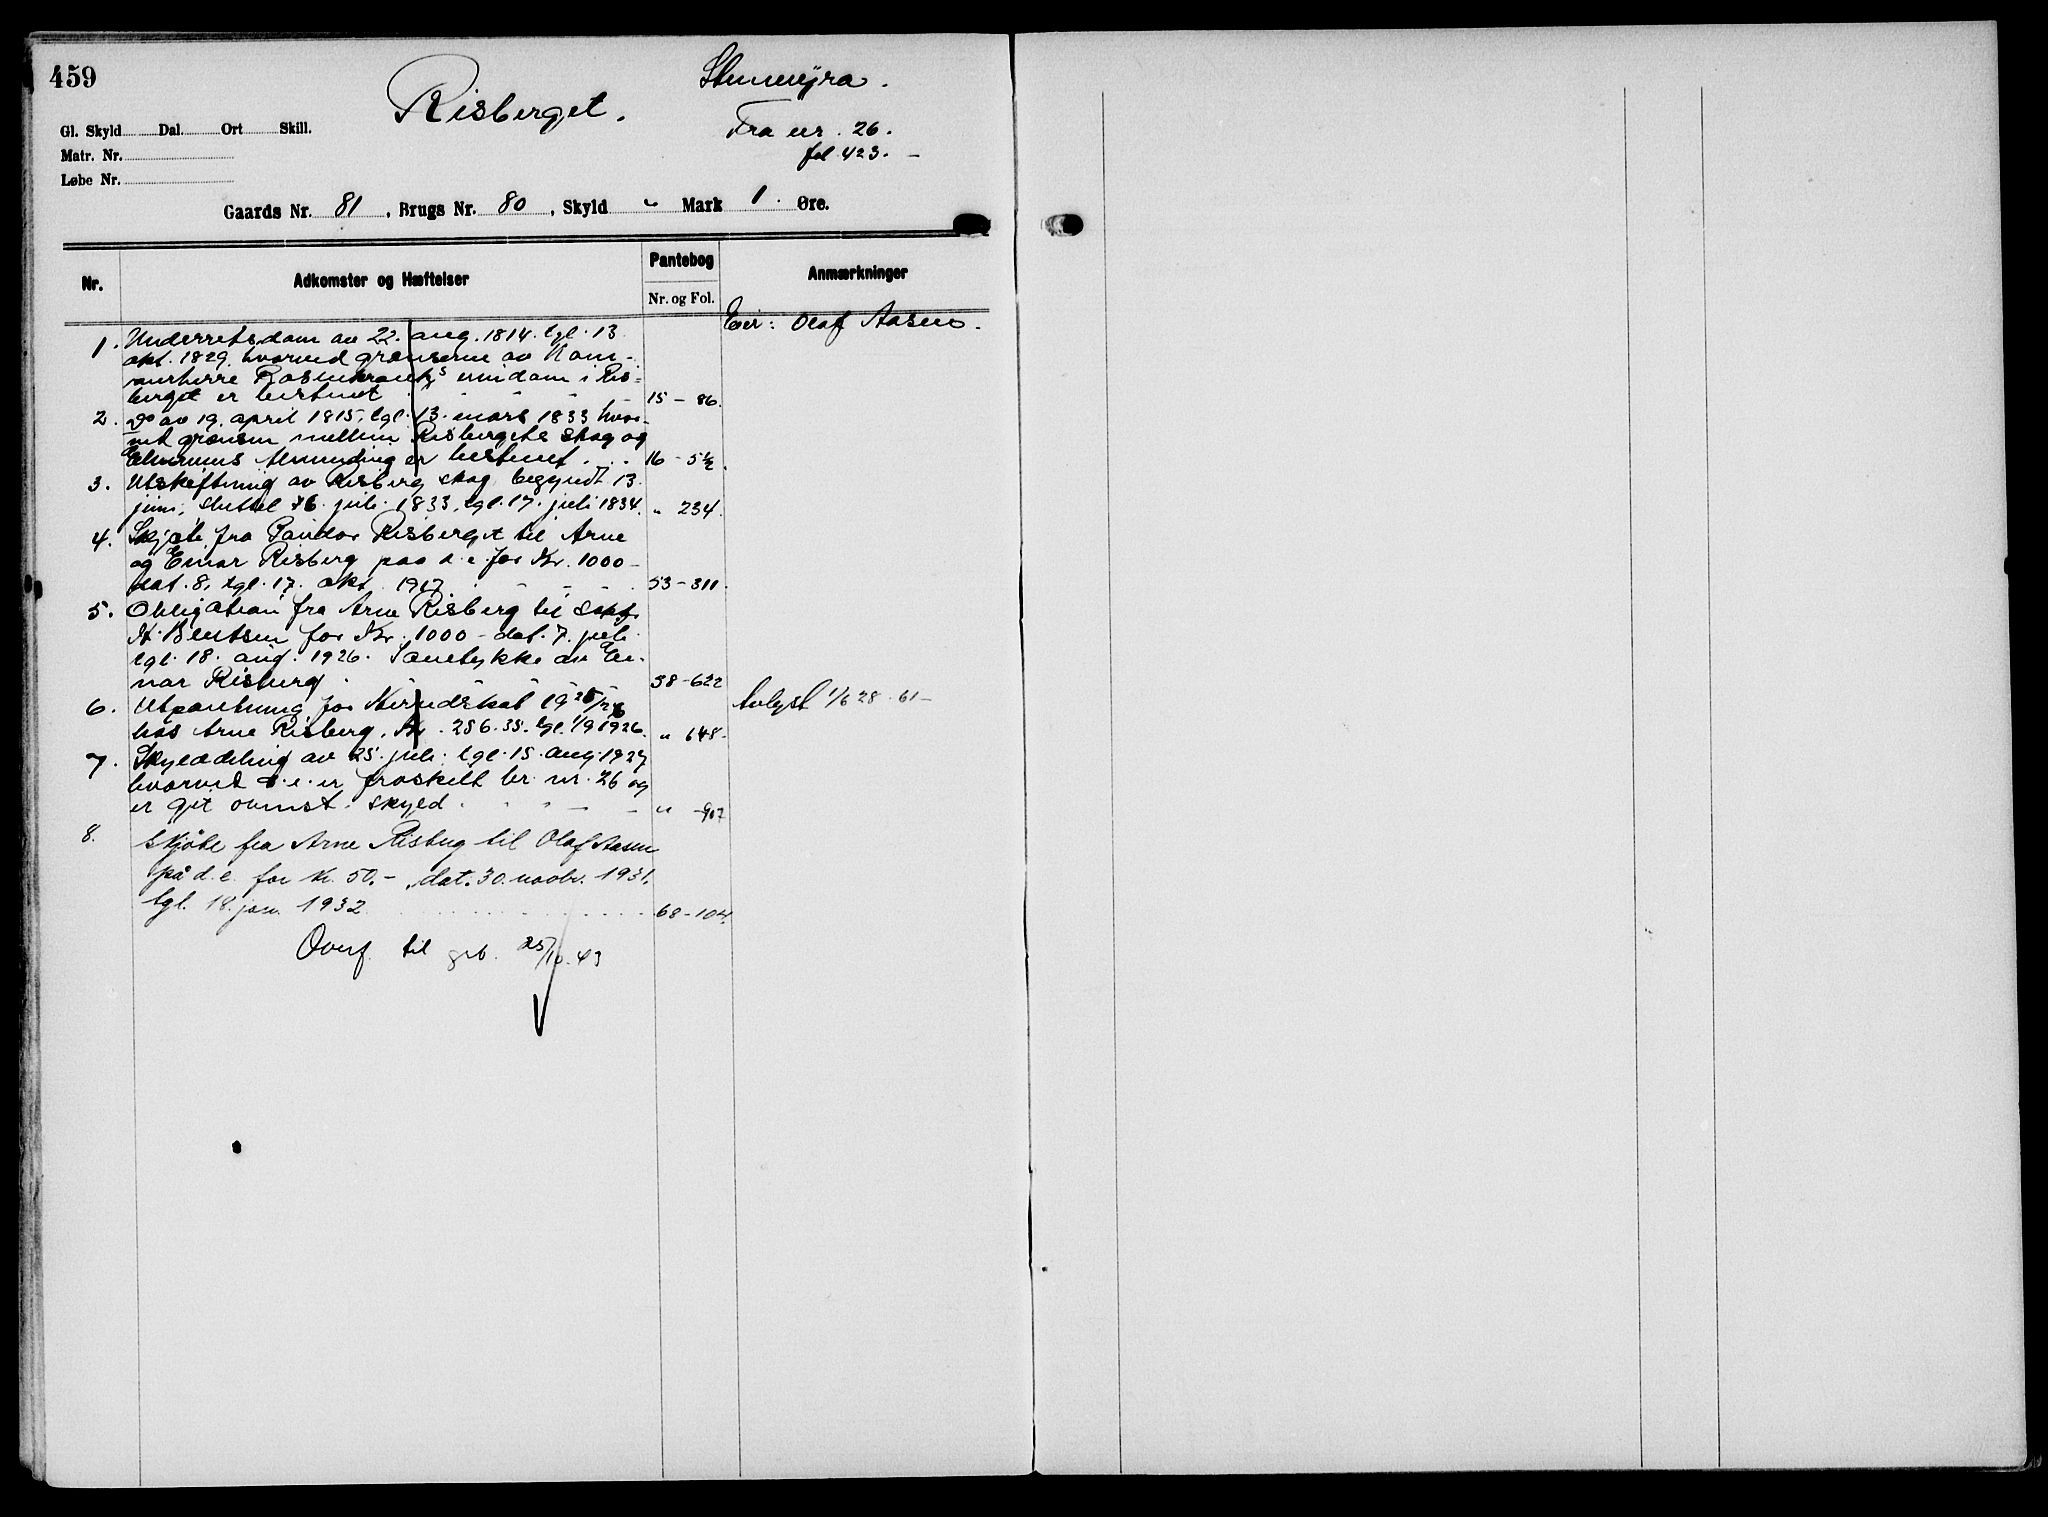 459
Risberget.
Stenmyra.
Fra nr. 26.
fol. 423. –
Gl. Skyld Dal. Ort Skill.
Matr. Nr.
Løbe Nr.
Gaards Nr. 81, Brugs Nr. 80, Skyld " Mark 1. Øre.
Nr. Adkomster og Hæftelser Pantebog Anmærkninger
Nr. og Fol.
Eier: Olaf Aasen.
1. Underretsdom av 22. aug. 1814. tgl. 13.
okt. 1829, hvorved grænserne av Kam-
merherre Rosenkrantz's eiendom i Ris-
berget er bestemt 15 – 86.
2. Do av 19. april 1815, tgl. 13. mars 1833 hvor-
ved grænsen mellem Risbergets skog og
Elverums Almending er bestemt . . . 16 – 5½.
3. Utskiftning av Risberg skog begyndt 13.
juni, sluttet 26. juli 1833, tgl. 17. juli 1834. " 234.
4. Skjøte fra Risberget til Arne
og Einar Risberg paa d. e. for Kr. 1000 –
dat. 8, tgl. 17. okt. 1917 53 – 311.
5. Obligation fra Arne Risberg til
H. Bentsen for Kr. 1000 – dat. 7. juli
tgl. 18. aug. 1926. Samtykke av Ei-
nar Risberg 58 – 622
6. Utpantning for 1925/26
hos Arne Risberg, Kr. 256.35. tgl. 1/9 1926. " 648.
Avlyst 1/6 28. 61 –
7. Skylddeling av 25. juli, tgl. 15. aug. 1927
hvorved d. e. er fraskilt br. nr. 26 og
er git ovenst. skyld. " – 907
8. Skjøte fra Arne Risberg til Olaf Aasen
på d. e. for kr. 50.–, dat. 30. novbr. 1931,
tgl. 18. jan. 1932 68 – 104.
Overf. til grb. 25/10. 43